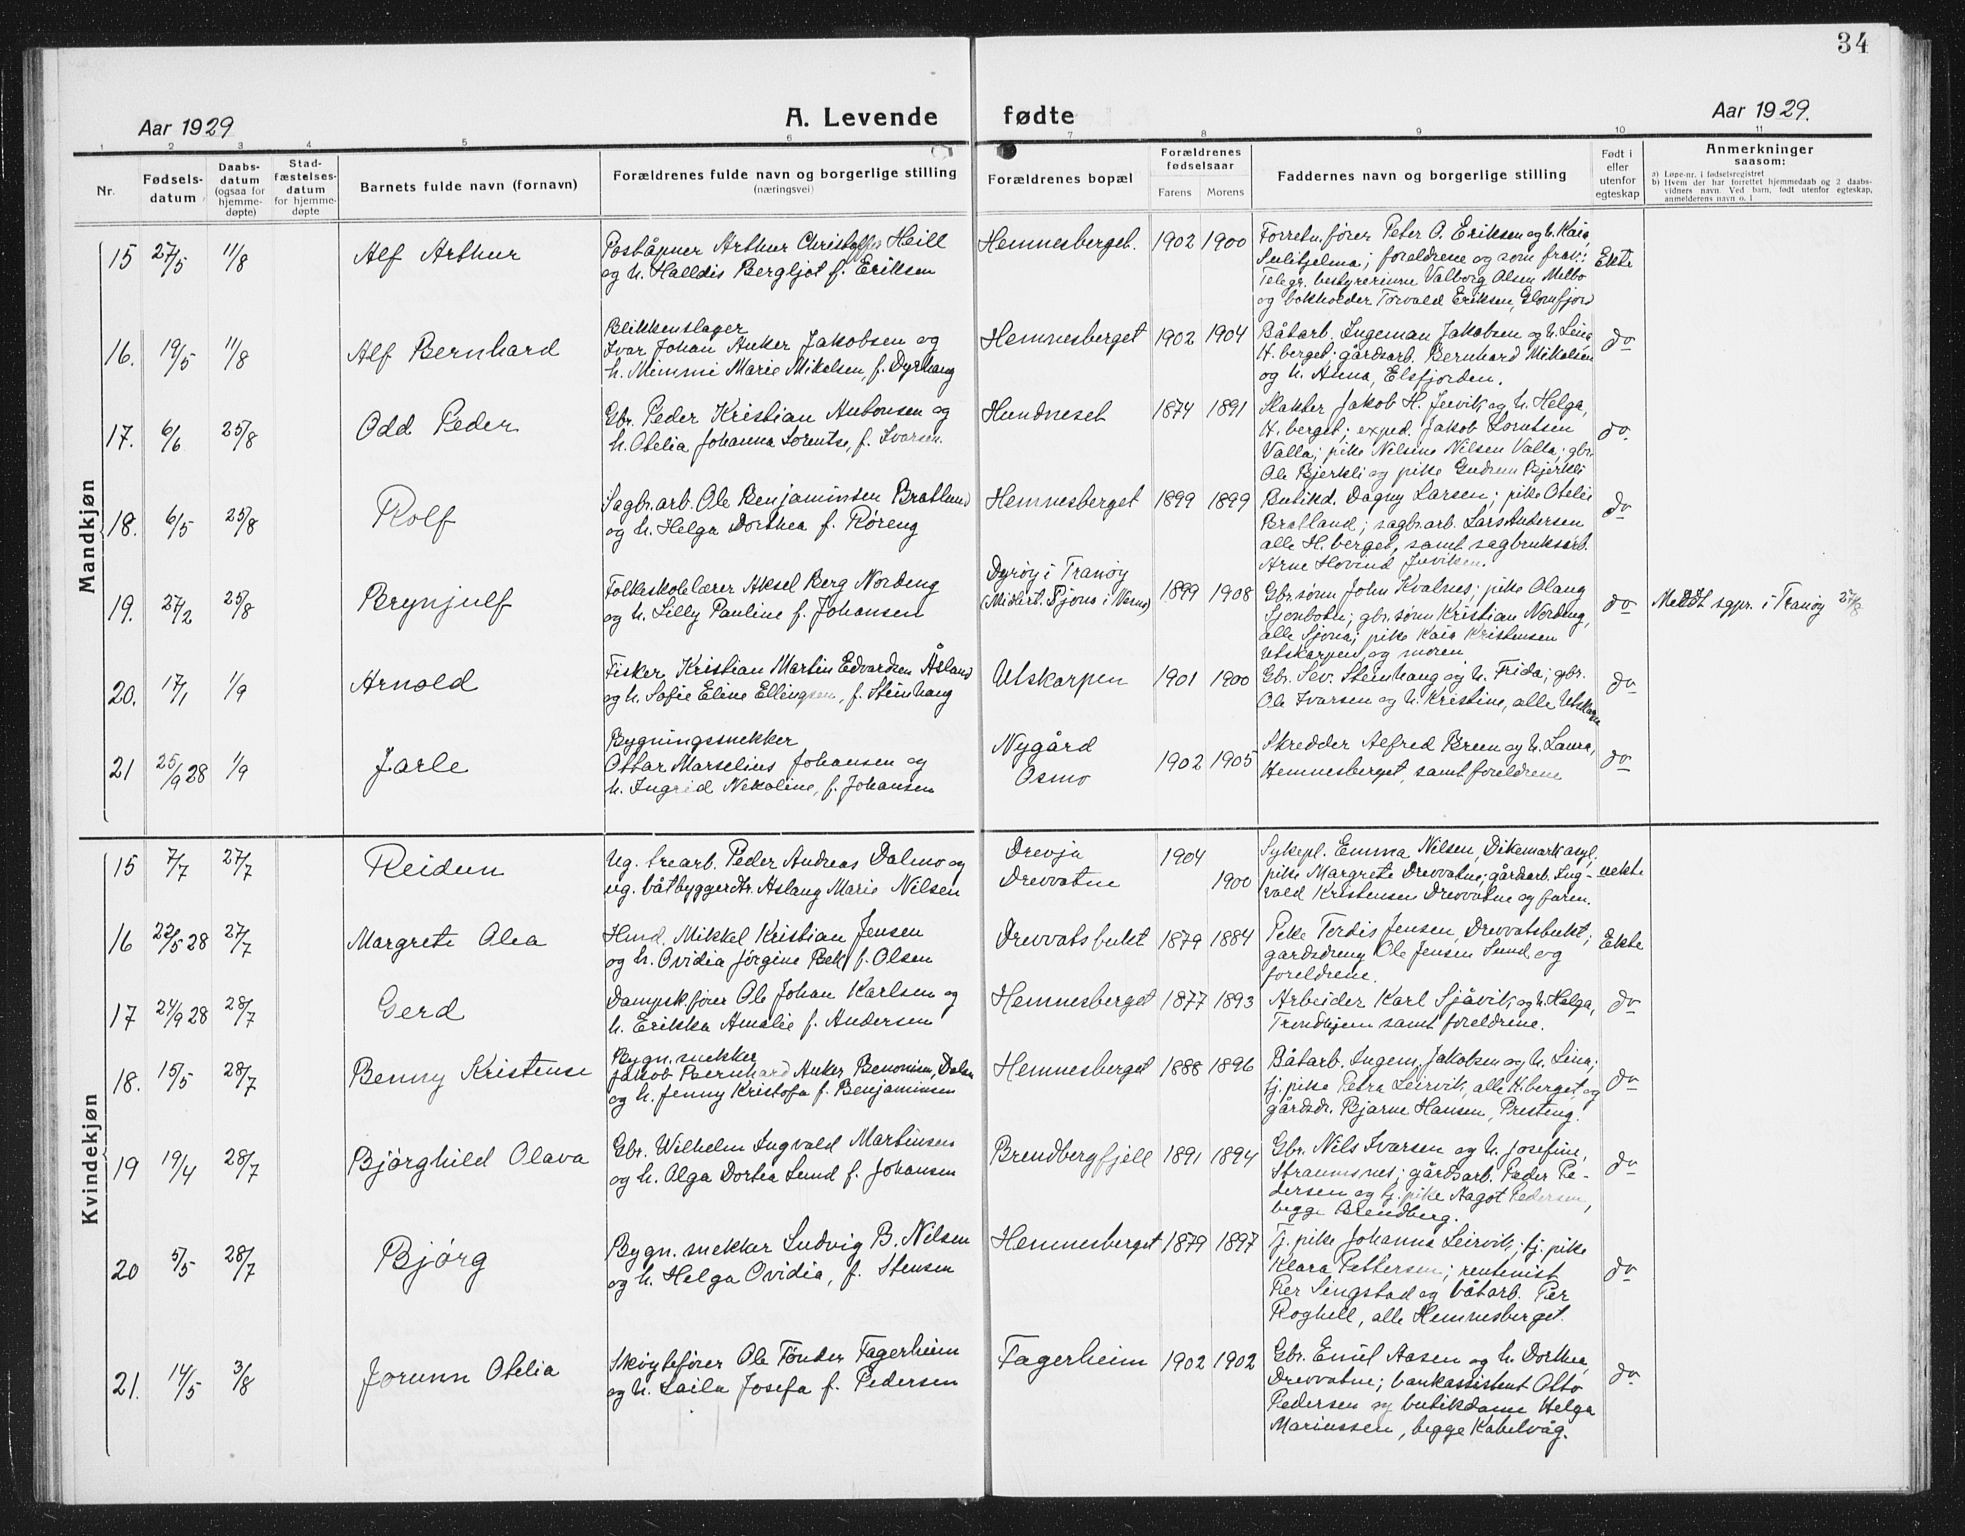 34
Aar 1929
A. Levende
fødte
Aar 1929.
1 2 3 4 5 6 7 8 9 10 11
Nr.
Fødsels-
datum
Daabs-
datum
(ogsaa for
hjemme-
døpte)
Stad-
fæstelses-
datum
for hjemme-
døpte
Barnets fulde navn (fornavn)
Forældrenes fulde navn og borgerlige stilling
(næringsvei)
Forældrenes bopæl
Forældrenes
fødselsaar
Farens Morens
Faddernes navn og borgerlige stilling
Født i
eller
utenfor
egteskap
Anmerkninger
saasom:
a) Løpe-nr. i fødselsregistret
b) Hvem der har forrettet hjemmedaab og 2 daabs-
vidners navn. Ved barn, født utenfor egteskap,
anmelderens navn o. l
Mandkjøn
15 27/5 11/8 Alf Arthur
Poståpner Arthur Heill
og h. Halldis Bergljot f. Eriksen
Hemnesberget. 1902 1900
Forretn.fører Peter O. Eriksen og h. Kaia,
Sulitjelma; foreldrene og som frav.:
Telegr. bestyrerinne Valborg Olsen Melbo
og bokholder Torvald Eriksen, Glomfjord
Ekte
16. 19/5 11/8 Alf Bernhard
Blikkenslager
Ivar Johan Anker Jakobsen og
h. Memmi Marie Mikelsen, f. Dyrhaug
Hemnesberget 1902 1904
Båtarb. Ingeman Jakobsen og h. Lina
H.berget; gårdsarb. Bernhard Mikalsen
og h. Anna, Elsfjorden.
do
17. 6/6 25/8 Odd Peder
Gbr. Peder Kristian Antonsen og
h. Otelia Johanna Lorentse, f. Ivarsen
Hundneset 1874 1891
Slakter Jakob H. og h. Helga,
H.berget; exped. Jakob Lorntsen
Valla; pike Nelsine Nilsen Valla; gbr.
Ole Bjerkli og pike Gudrun Bjerkli
do
18. 6/5 25/8 Rolf
Sagbr.arb. Ole Benjaminsen Bratland
og h. Helga Dorthea f. Røreng
Hemnesberget 1899 1899
Butikd. Dagny Larsen; pike Otelie
Bratland; sagbr.arb. Lars Andersen
alle H.berget, samt sagbruksarb.
Arne Hovind, Juviken.
do
19. 27/2 25/8 Brynjulf
Folkeskolelærer Aksel Berg Nordeng
og h. Lilly Pauline f. Johansen
Dyrøy i Tranøy
(Midlert. Sjona i Nesna) 1899 1908
Gbr.sønn John Kvalnes; pike Olaug
Sjonbotn; gbr.sønn Kristian Nordeng,
alle Sjona; pike Kaia Kristensen
Utskarpen og moren
do
Meddt sgpr. i Tranøy 27/8
20. 17/1 1/9 Arnold
Fisker Kristian Martin Edvardsen Åsland
og h. Sofie Eline Ellingsen, f. Steinhaug
Utskarpen 1901 1900
Gbr. Sev. Steinhaug og h. Frida; gbr.
Ole Ivarsen og h. Kristine, alle Utskarpen
do
21 25/9 28 1/9 Jarle
Bygningssnekker
Ottar Marselius Johansen og
h. Ingrid Nekoline, f. Johansen
Nygård
Osmo
1902 1905
Skredder Alfred Breen og h. Laura,
Hemnesberget, samt foreldrene
do
Kvindekjøn
15 7/7 27/7 Reidun
Ug. trearb. Peder Andreas Dalmo og
ug. båtbyggerdtr. Aslaug Marie Nilsen
Drevja
Drevvatne
1904
1900
Sykepl. Emma Nilsen, Dikemark asyl,
pike Margrete Drevvatne, gårdarb. Ing-
vald Kristensen Drevvatne og faren.
uekte
16 22/5 28 27/7 Margrete Olea
Hmd. Mikkel Kristian Jensen
og h. Ovidia Jørgine Bek f. Olsen
Drevvatsbukt 1879 1884
Pike Terdis Jensen, Drevvatsbukt;
gårdsdreng Ole Jensen Sund og
foreldrene.
Ekte
17 24/9 28 28/7 Gerd
Dampsk.fører Ole Johan Karlsen og
h. Erikka Amalie f. Andersen
Hemnesberget 1877 1893
Arbeider Karl Sjåvik og h. Helga,
Trondhjem samt foreldrene.
do
18. 15/5 28/7 Benny Kristense
Bygn.snekker
Jakob Bernhard Anker Benonisen,
og h. Jenny Kristofa f. Benjaminsen
Hemnesberget 1888 1896
Båtarb. Ingem. Jakobsen og h. Lina;
tj.pike Petra Leirvik, alle H.berget, og
gårdsdr. Bjarne Hansen, Presteng.
do
19 19/4 28/7 Bjørghild Olava
Gbr. Wilhelm Ingvald Martinsen
og h. Olga Dortea Lund f. Johansen
Brendbergfjell 1891 1894
Gbr. Nils Ivarsen og h. Josefine,
Straumsnes; gårdsarb. Peder Pe-
dersen og tj.pike Aagot Pedersen,
begge Brendberg.
do
20 5/5 28/7 Bjørg
Bygn.snekker Ludvig B. Nilsen
og h. Helga Ovidia, f. Stensen
Hemnesberget 1879 1897
Tj.pike Johanna Leirvik; tj.pike
Klara Pettersen; rentenist
Per Singstad og båtarb. Per
Roghell, alle Hemnesberget.
do
21. 14/5 3/8 Jorunn Otelia
Skøytefører Ole Tønder Fagerheim
og h. Laila Josefa f. Pedersen
Fagerheim 1902 1902
Gbr. Emil Aasen og h. Dorthea,
Drevvatne; bankassistent Otto
Pedersen og butikdame Helga
Mariussen, begge Kabelvåg.
do